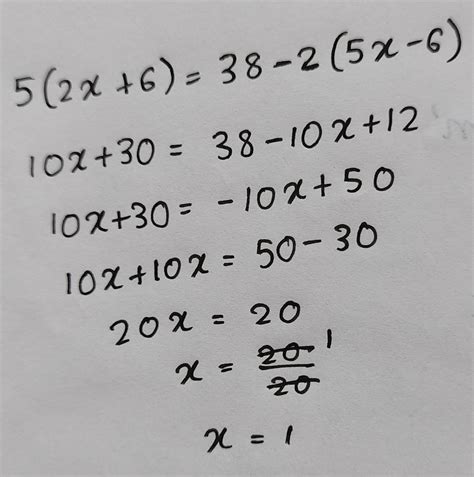 5(2x+6) = 38-2(5x-6)
10x+30 = 38-10x+12
10x+30 = -10x+50
10x+10x = 50-30
20x = 20
x = 20/20 1
x = 1